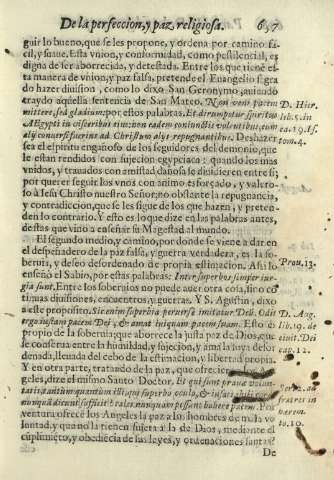 De la perfeccion, y paz religiosa. 657
guir lo bueno, que se les propone, y ordena por camino fa-
cil, y suaue. Esta vnion, y conformidad, como pestilencial, es
digna de ser aborrecida, y detestada. Entre los que tienē es-
ta manera de vnion, y paz falsa, pretende el Euangelio sagra
do hazer diuision, como lo dixo San Geronymo, auiendo
traydo aquella sentencia de San Mateo. Non veni pacem
mittere, sed gladium, por estas palabras. Et dirumpetur spiritus
Aegypti in visceribus eius: non eadem omnibus volentibus, cum
alij conuersi fuerint ad Christum alijs repugnantibus. Deshazer
sea el espiritu engañoso de los seguidores del demonio, que
le estan rendidos con sujecion egypciaca: quando los mas
vnidos, y trauados con amistad dañosa se diuidieren entre si;
por que er seguir los vnos con animo esforçado, y valero-
so à Iesu Christo nuestro Señor, no obstante la repugnancia,
y contradiccion, que se les sigue de los que hazen, y preten-
den lo contrario. Y esto es lo que dize en las palabras antes,
destas que vino a enseñar su Magestad al mundo.
El segundo medio, y camino, por donde se viene a dar en
el despeñadero de la paz falsa, y guerra verdadera, es la so-
beruia, y deseo desordenado de propria estimacion. Asi lo
enseñò el Sabio, por estas palabras. Inter superbos semper iur-
gia sunt. Entre los soberuios no puede auer otra cosa, sino cō
tinuas diuisiones, encuentros, y guerras. Y S. Agustin, dixo
a este proposito. Sic enim superbia peruerse imitatur Deū. Odit
ergo iustam pacem Dei, & amat iniquam pacem suam. Esto es
proprio de la soberuia; que aborrece la justa paz de Dios, que
se conserua entre la humildad, y sujecion, y ama la suya desor
denada, lleuada del cebo de la estimacion, y libertad propria.
Y en otra parte, tratando de la paz, que ofrecieron los An-
geles, dize el mismo Santo Doctor. Et qui sunt prauæ volun-
tatis
nunquā dicunt sufficit: tales nunquam possunt habere pacem. Por
ventura ofrecē los Angeles la paz a los hombres de mala vo
luntad, y que no la tienen sujeta a la de Dios, mediante el
cūplimiēto, y obediēcia de sus leyes, y ordenaciones santas?
De
D. Hier.
lib. 5. in
ca. 19. Is.
tom. 4.
Prou. 13.
D. Aug.
lib. 19. de
ciuit. Dei
cap. 12.
fratres in
tō. 10.